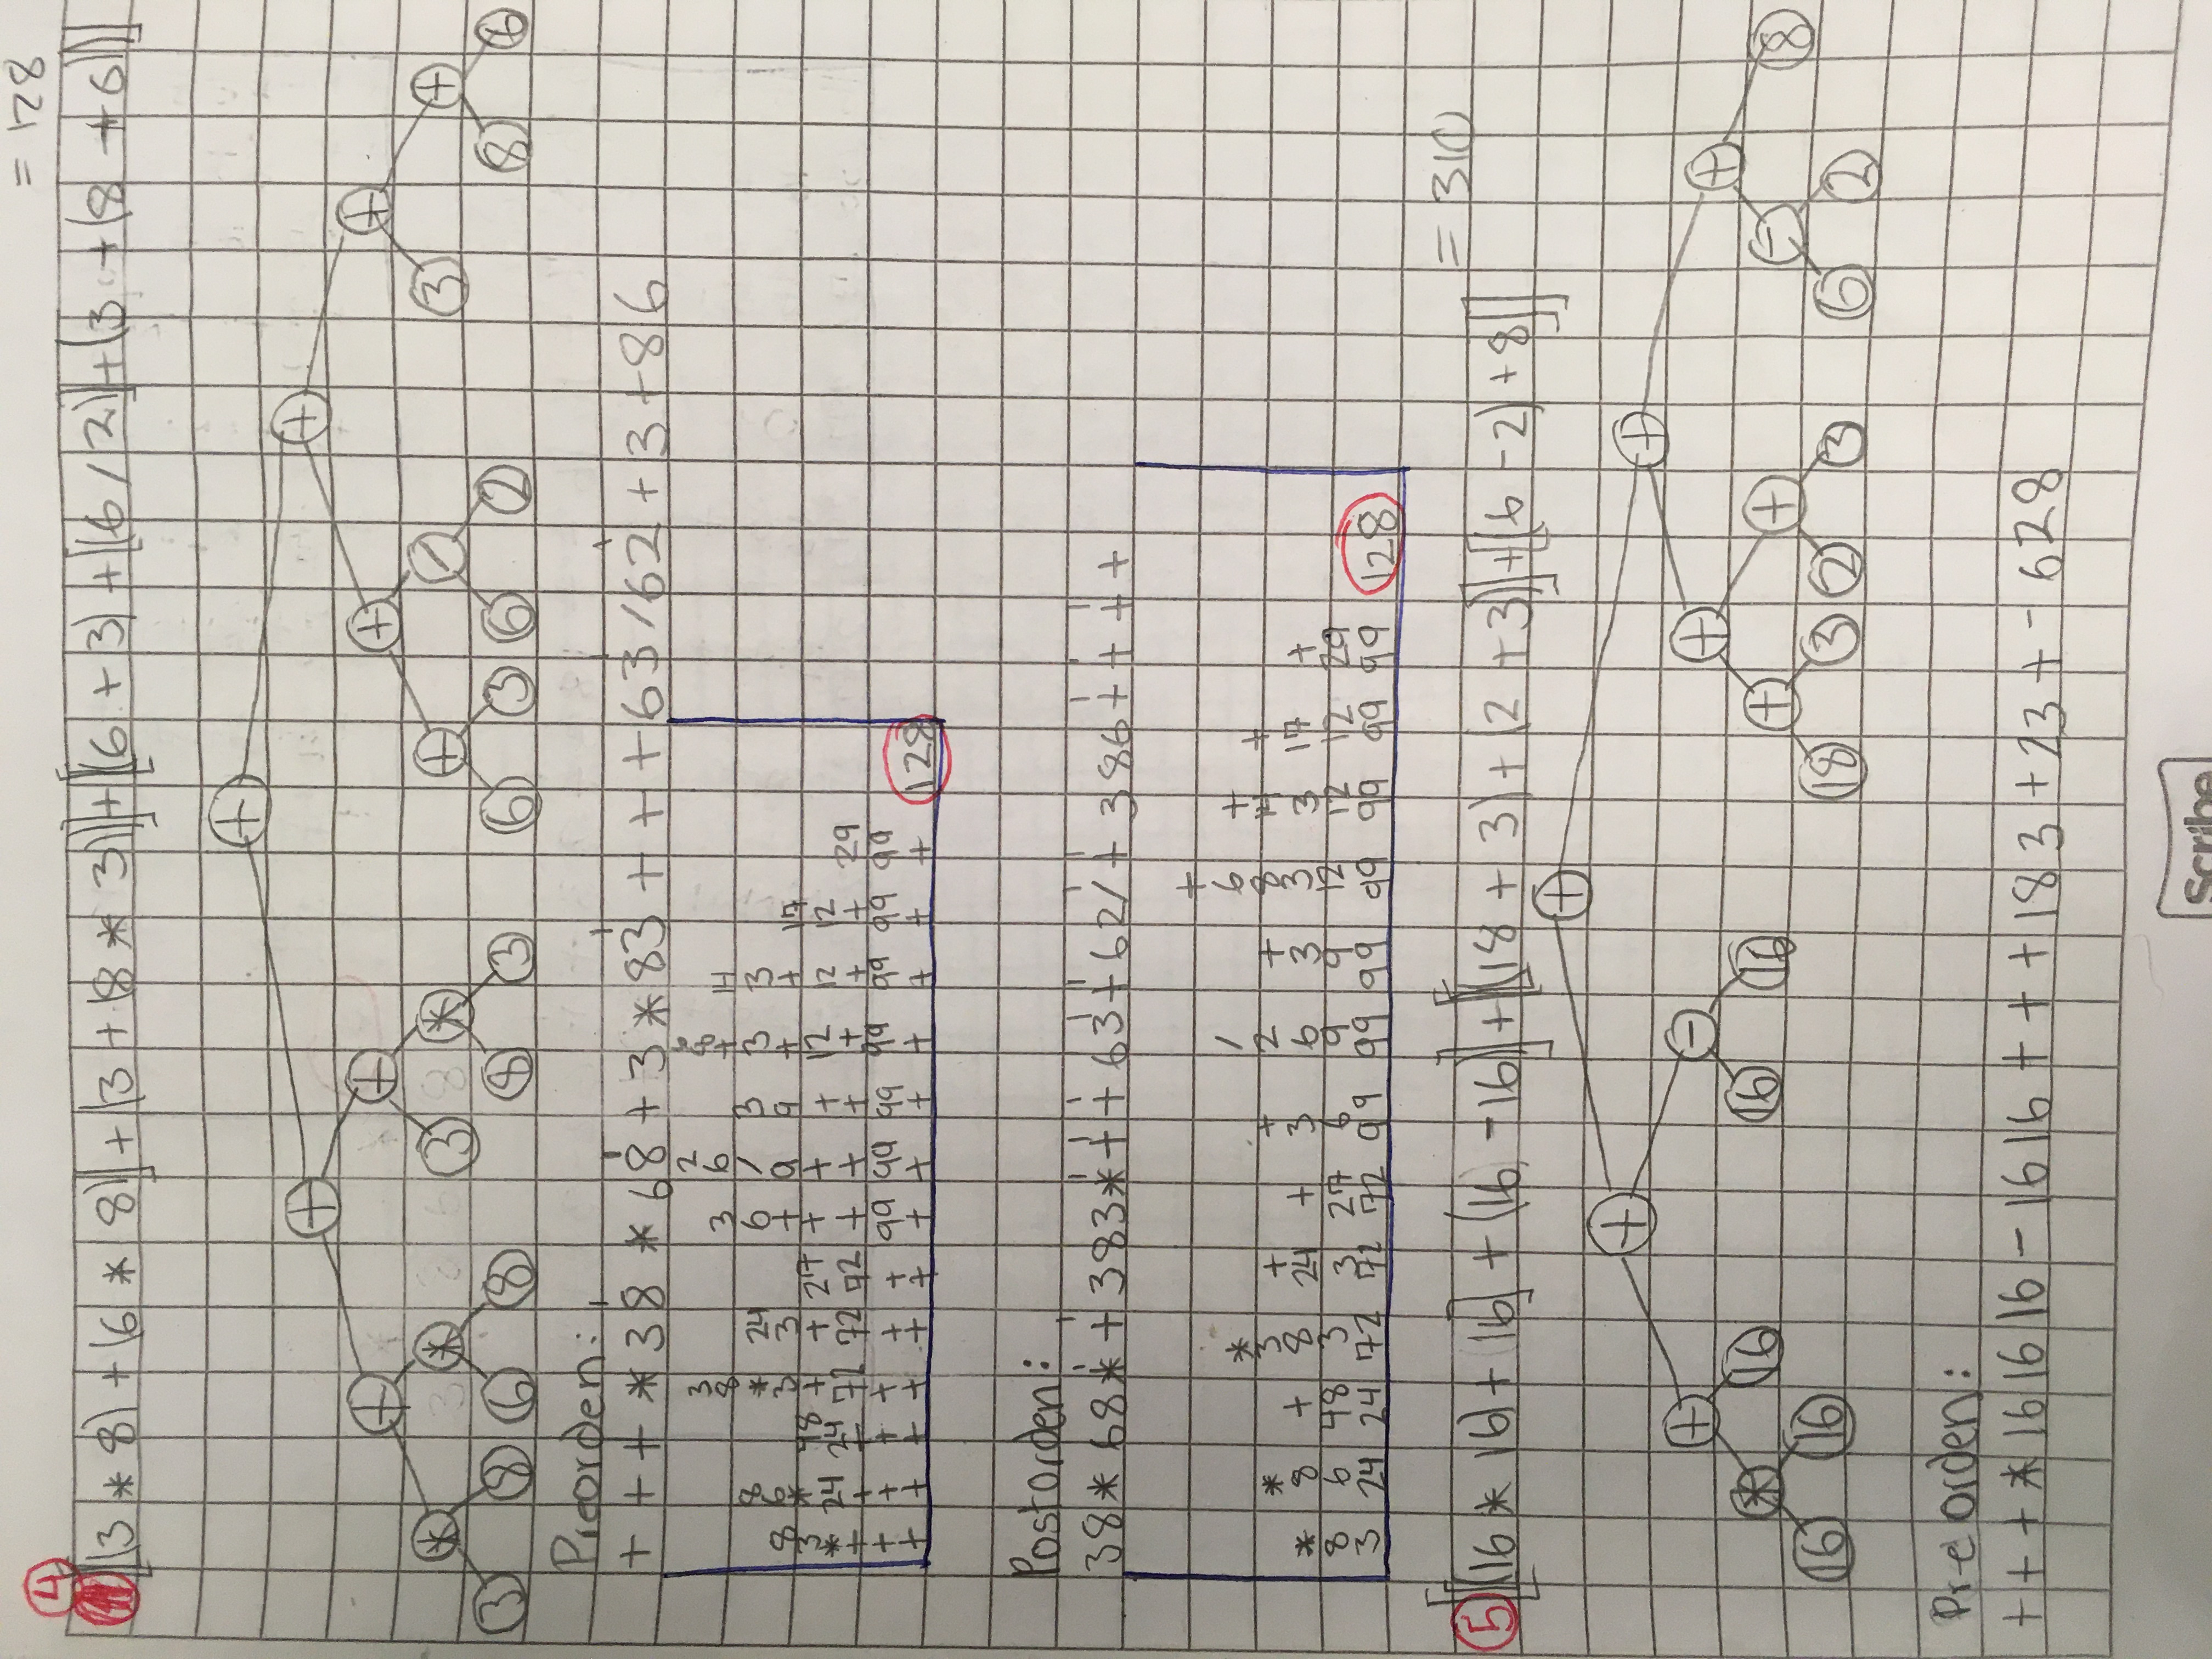 = 128
4 [[(3 * 8) + (6 * 8)] + (3 + (8 * 3))] + [[(6 + 3) + [(6 / 2)] + (3 + (8 + 6))]]
+
+ +
+ + + +
* * 3 * + / 3 +
3 8 6 8 8 3 6 3 6 2 8 6
Preorden:
+ + + * 3 8 * 6 8 + 3 * 8 3 + + + 6 3 / 6 2 + 3 + 8 6
3 2 8
8 3 6 + 14
8 * 24 6 / 3 3 3
8 6 3 3 + 9 9 + + 17
3 * 48 + + 27 + + + 12 12 12
* 24 24 72 72 72 + + + + + + 29
+ + + 99 99 99 99 99 99 99
+ + + + + + + + + + + + + 128
Postorden:
3 8 * 6 8 * + 3 8 3 * + + 6 3 + 6 2 / + 3 8 6 + + + +
+
* / 6 +
* 3 + + 2 + 8 14 +
* 8 + 8 24 + 3 6 3 3 3 17 +
8 6 48 3 3 27 6 9 9 12 12 12 29
3 24 24 72 72 72 99 99 99 99 99 99 99 128
= 310
5 [[(16 * 16) + 16] + (16 - 16)] + [[(18 + 3) + (2 + 3)] + [(6 - 2) + 8]]
+
+ +
+ - + +
* 16 16 16 + + - 8
16 16 18 3 2 3 6 2
Preorden:
+ + + * 16 16 16 - 16 16 + + + 18 3 + 2 3 + - 6 2 8
Scribe